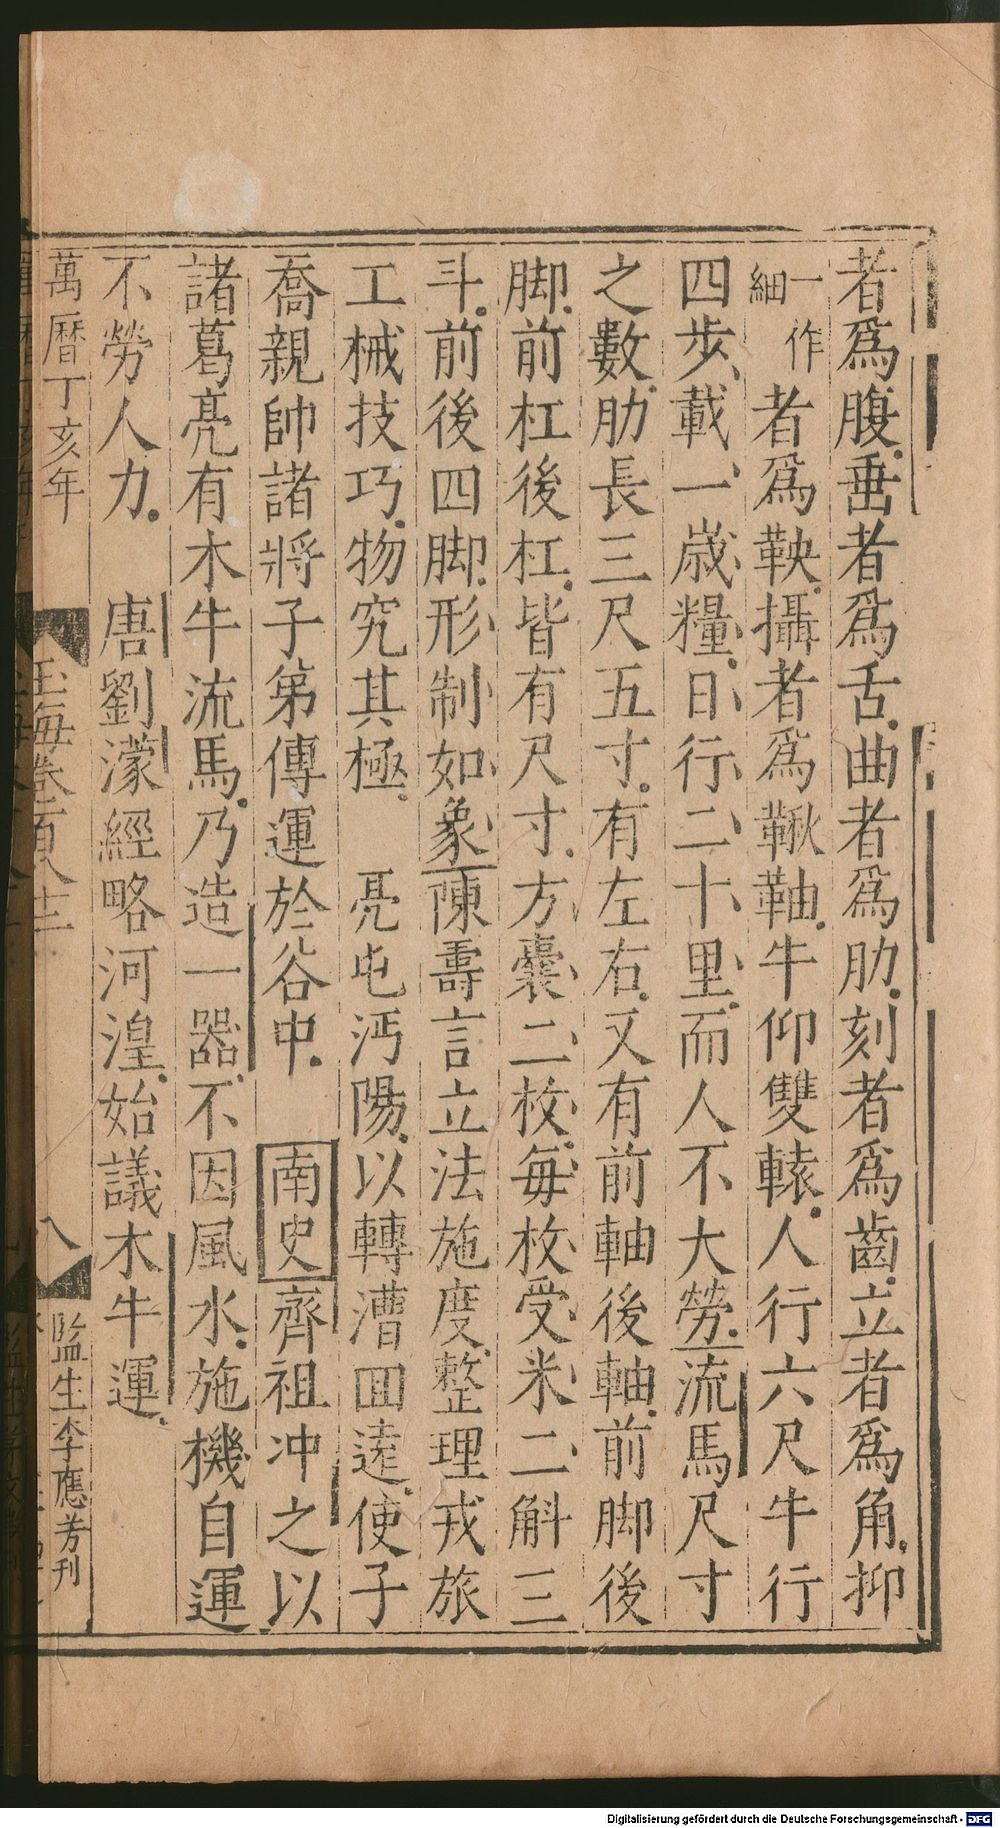 者爲腹垂者爲舌曲者爲肋刻者爲齒立者爲角抑
一作細者爲鞅攝者爲鞦軸牛仰雙轅人行六尺牛行
四步載一歲糧日行二十里而人不大勞流馬尺寸
之數肋長三尺五寸有左右又有前軸後軸前脚後
脚前杠後杠皆有尺寸方囊二枚每枚受米二斛三
斗前後四脚形制如象陳壽言立法施度整理戎旅
工械技巧物究其極 亮屯沔陽以轉漕回遠使子
喬親帥諸將子弟傳運於谷中 南史齊祖冲之以
諸葛亮有木牛流馬乃造一器不因風水施機自運
不勞人力 唐劉濛經略河湟始議木牛運
萬曆丁亥年 玉海卷一百八十二 八 監生李應芳刊
Digitalisierung gefördert durch die Deutsche Forschungsgemeinschaft - DFG